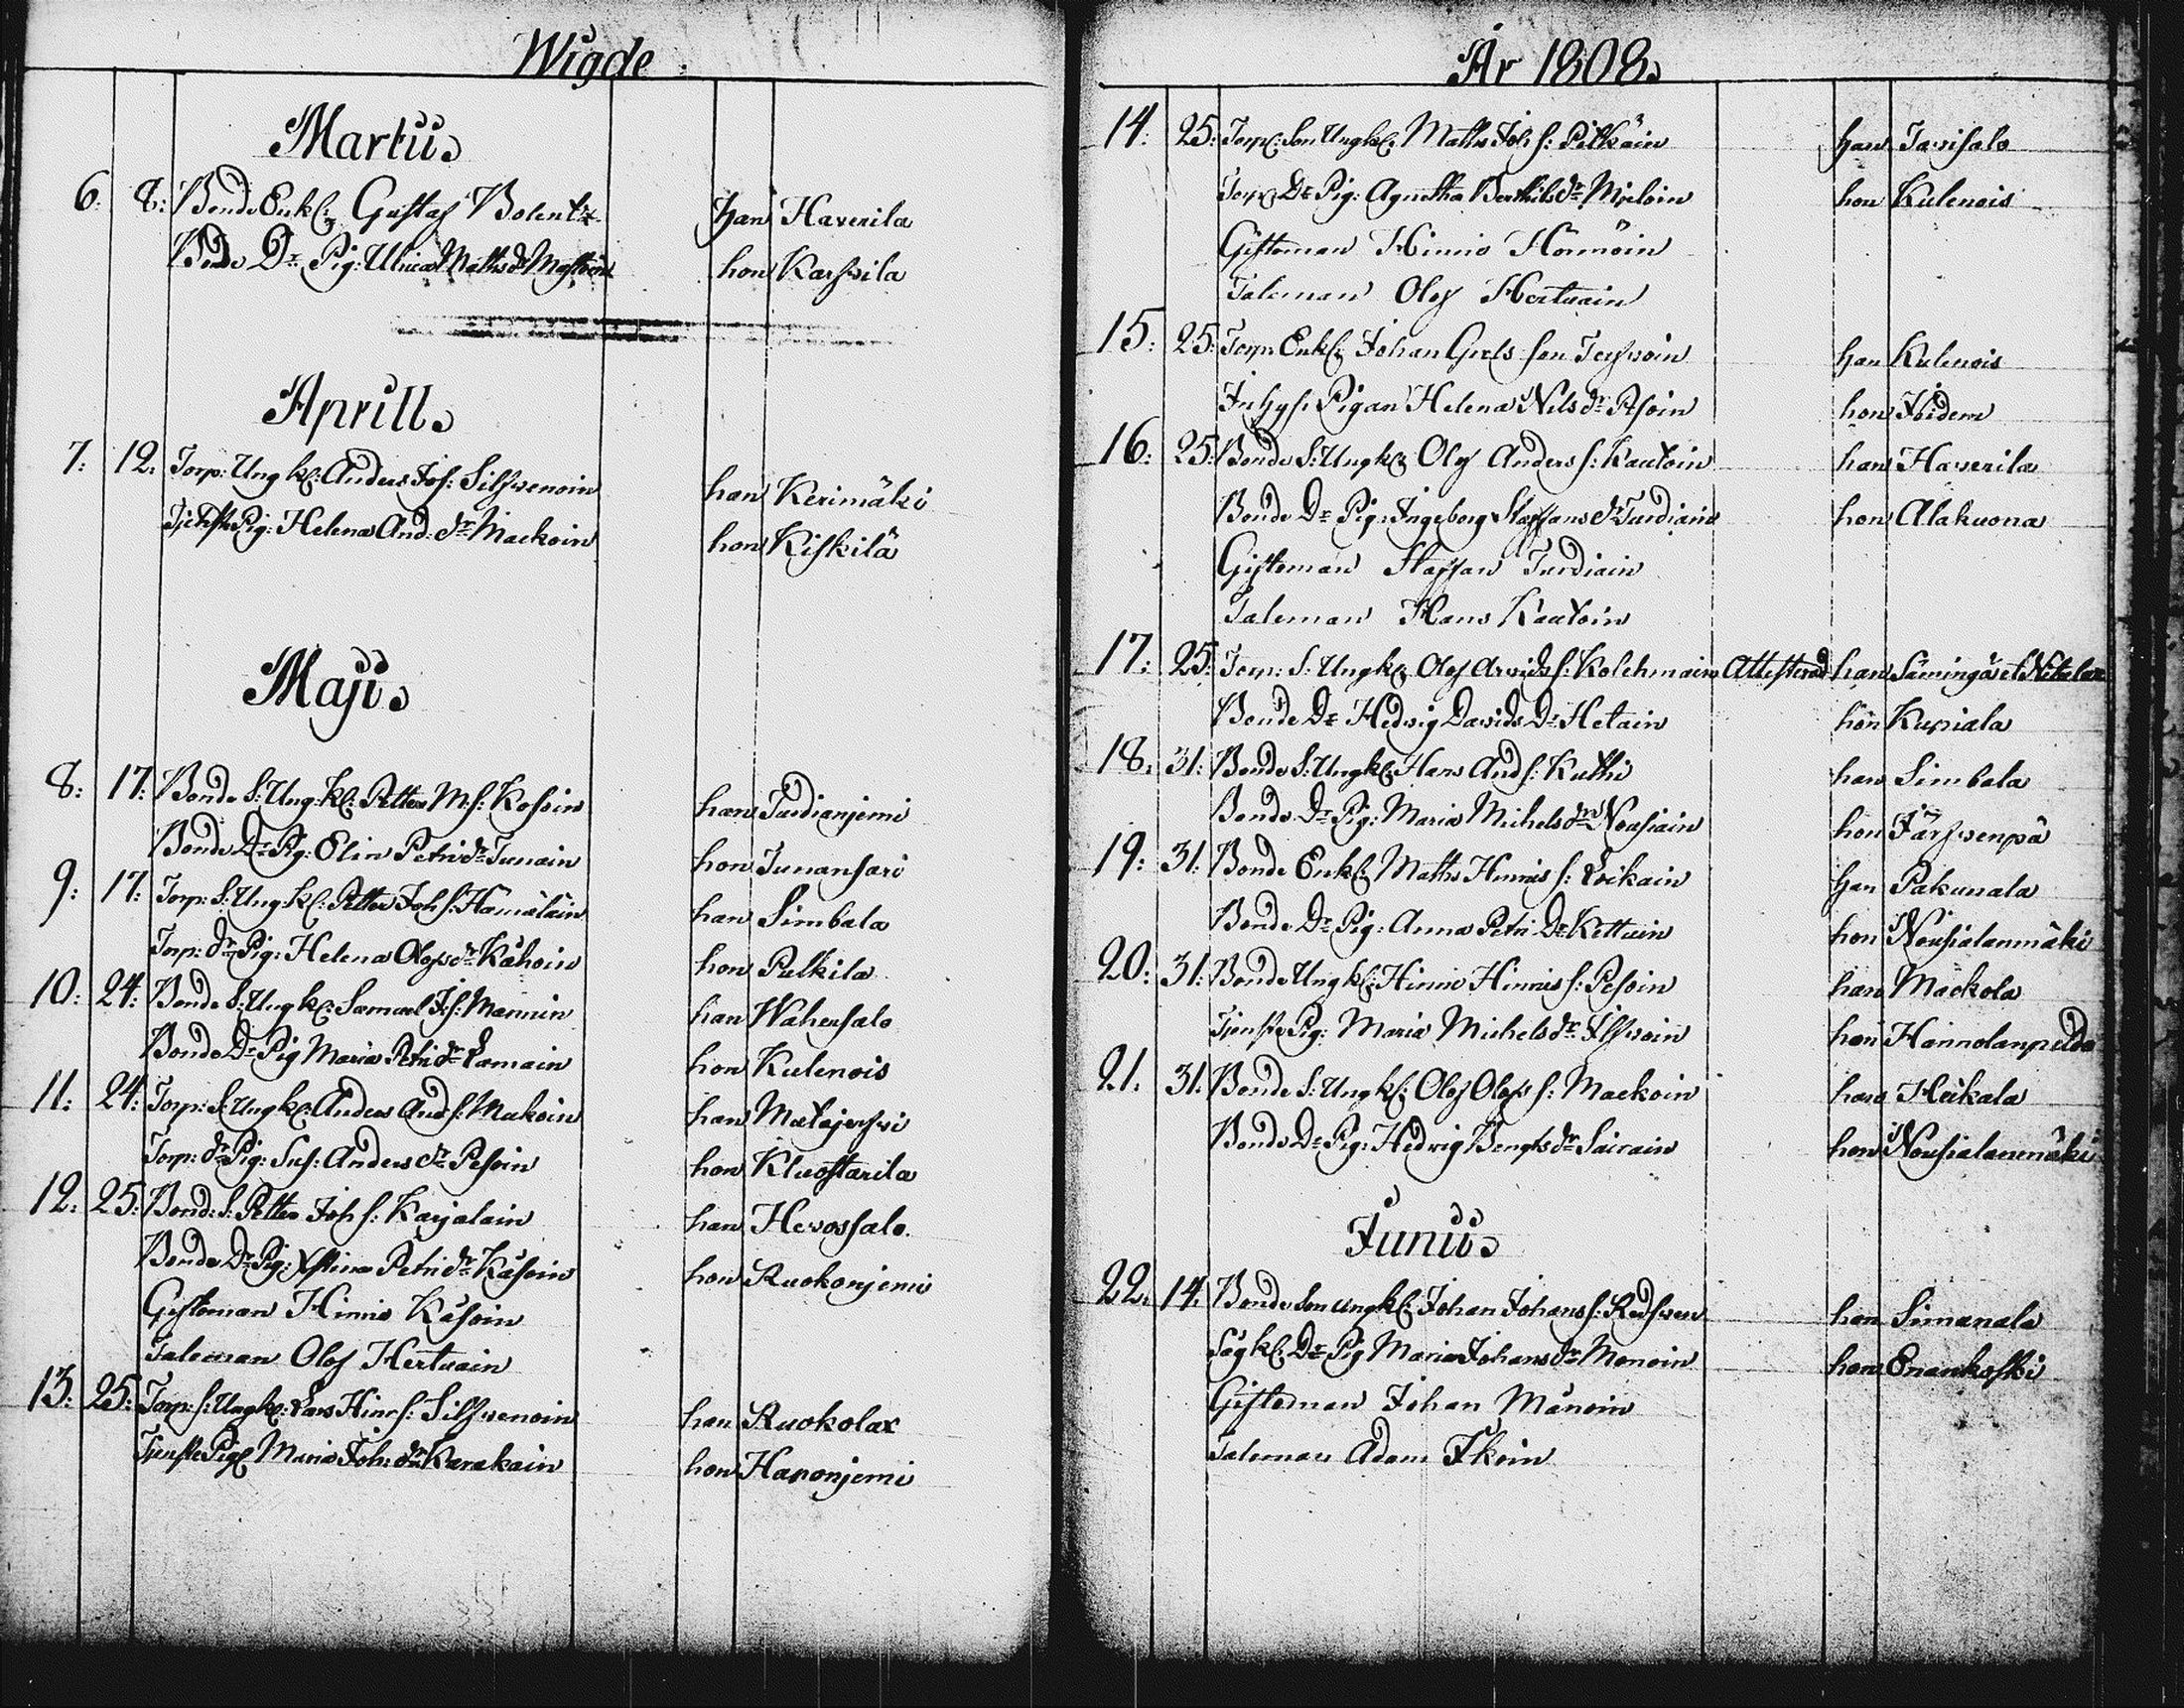 Wigde
Martii
6: 8: Bonde Enkl: Gustaf Bolentz han Haverila
Bonde Dr Pig: Ulrica Maths dr han Karsvila
Aprill
7: 12: Torp: Ung kl: Anders Joh: Silfvenoin han Kerimäki
Tjenste Pig: Helena And: dr Mackoin hon Kiskilä
Maji
8: 17: Bonde S: Ung: kl: Petter M: s: Kosoin han Turdianjemi
Bonde Dr Pig: Elin Petri dr Tunain hon Tunansari
9: 17: Torp: S: Ung kl: Petter Joh s: Hämäläin han Simbala
Torp: dr Pig: Helena Olofs dr Kåhoin hon Pulkila
10: 24: Bonde S: Ung kl: Samuel s: Mannin han Wahersalo
Bonde Dr Pig Maria Petri dr Lamain hon Kulenois
11: 24: Torp: S: Ung kl: Anders And s: Mukoin han
Torp: dr Pig: Sus: Anders dr Pesoin hon Kluostarila
12: 25: Bond: S: Petter Joh s: Karjalain han Hevossalo
Bonde Dr Pig: Xstina Petri dr Kåsoin hon Ruokonjemi
Giftoman Hinric Kåsoin
Taleman Olof Hertuain
13: 25: Torp: s: Ung kl: Lars Hinr s: Silfvenoin han Ruokolax
Tjenste Pig: Maria Joh: dr Karakain hon Haponjemi
År 1808
14: 25: Torp: Son Ung kl: Maths Joh s: Pitkäin han Tavisalo
Torp Dr Pig: Agnetha Berthils dr Mieloin hon Kulenois
Giftoman Hinric Hörmöin
Taleman Olof Hertuain
15: 25: Torp: Enkl: Johan Grels son Terfvoin han Kulenois
Inhys: Pigan Helena Nils dr Pesoin hon Ibidem
16: 25: Bonde S: Ung kl: Olof Anders s: Kautoin han Haverila
Bonde Dr Pig: Ingeborg Staffans dr Turdiain hon Alakuona
Giftoman Staffan Turdiain
Taleman Hans Kautoin
17: 25: Torp: S: Ung kl: Olof Arvids s: Kolehmain Attesterad han Säminga et Nikala
Bonde Dr Hedvig Davids Dr Hetain hon Kupiala
18: 31: Bonde S: Ung kl: Hans And s: Kuthi han Simbala
Bonde Dr Pig: Maria Michels dr Nousiain hon Järfvenpä
19: 31: Bonde Enkl: Maths Hinrics s: Loikain han Pakunala
Bonde Dr Pig: Anna Petri Dr Kettuin hon Nousialanmäki
20: 31: Bonde Ung kl: Hinric Hinrics s: Pesoin han Mackola
Tjenste Pig: Maria Michels dr hon Hannolanpeldo
21: 31: Bonde S: Ung kl: Olof Olofs s: Mackoin han Heikala
Bonde Dr Pig: Hedvig Bengts dr Sairain hon Nousialanmäki
Junii
22: 14: Bonde Son ung kl: Johan Johans s: Redsven han Simanala
Sågkl: Dr Pig Maria Johans dr Monoin hon Enankoski
Giftoman Johan Månoin
Taleman Adam Ikoin